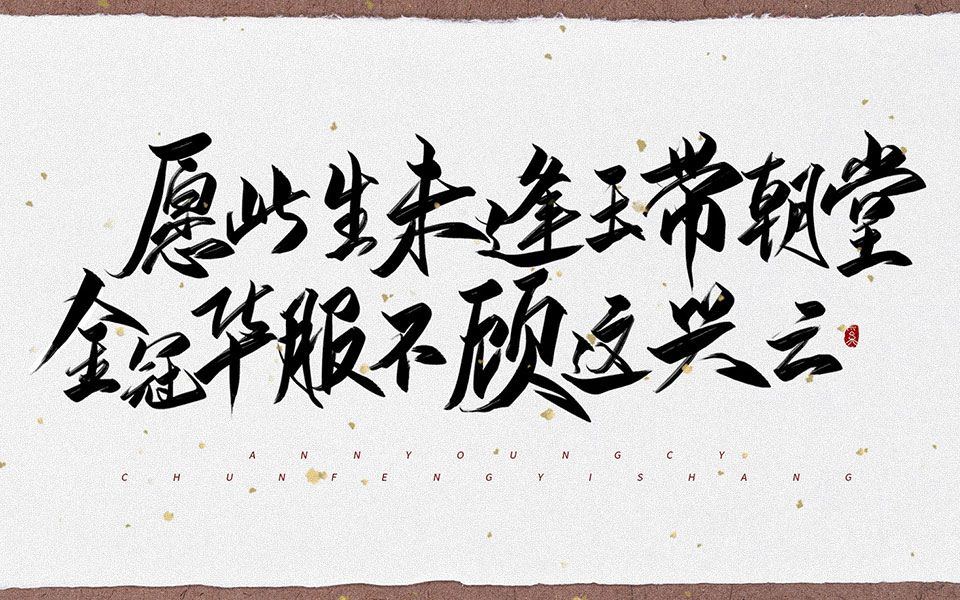 愿此生未逢玉带朝堂
金冠华服不顾这兴云
ANNYOUNGCY
CHUNFENGYISHANG